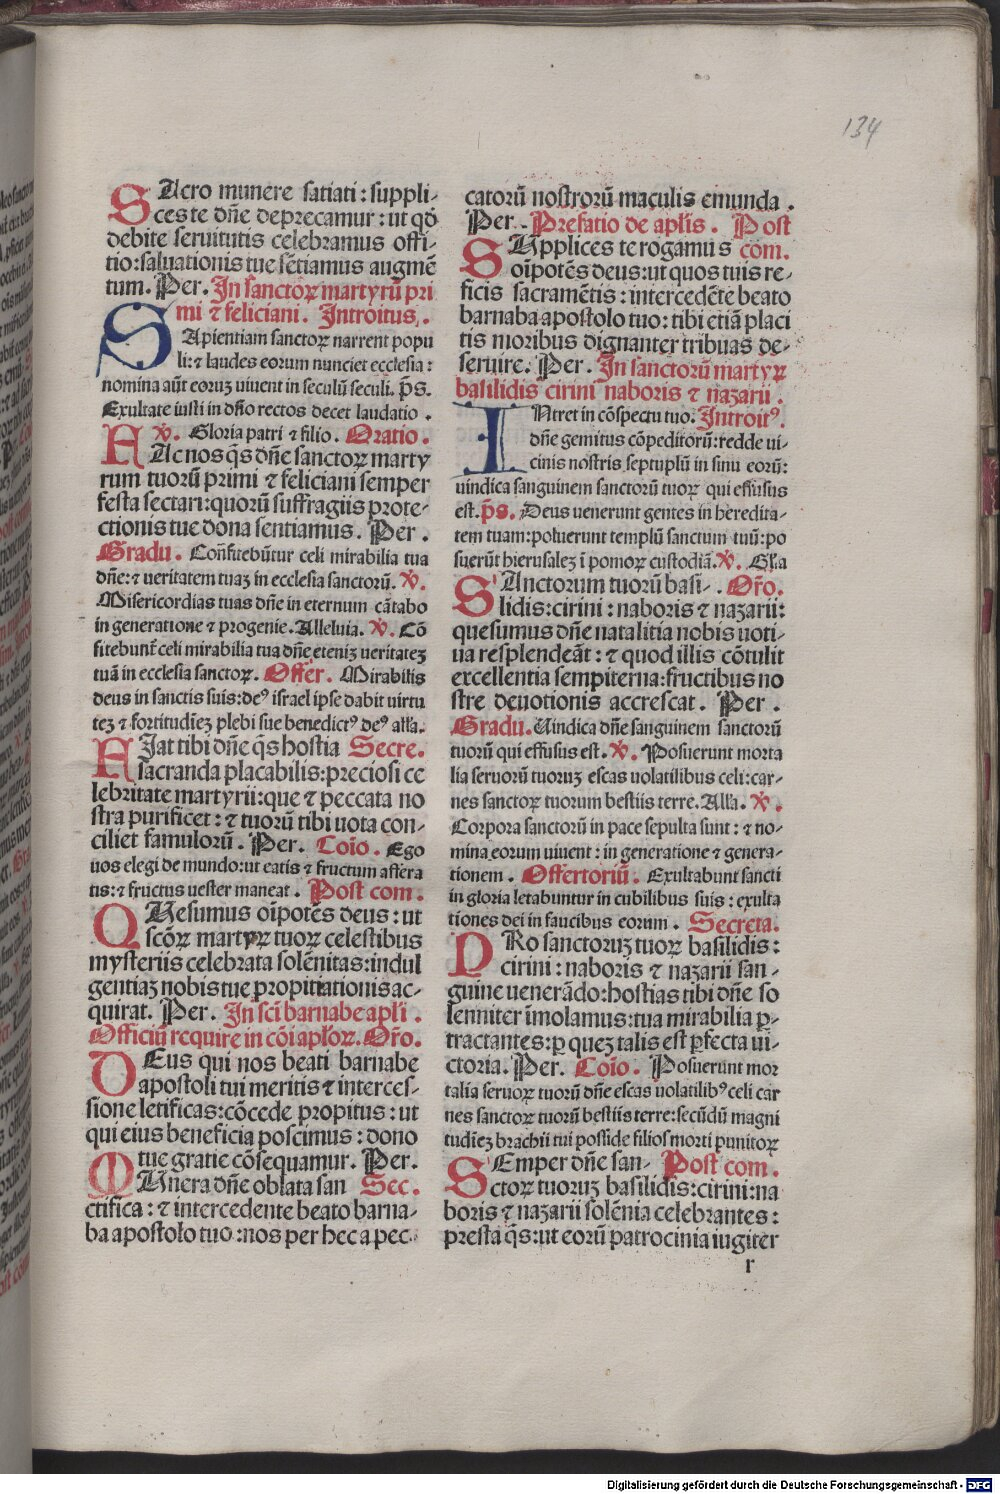 134
SAcro munere satiati : suppli-
ces te dñe deprecamur : ut qď
debite seruitutis celebramus offi-
tio: saluationis tue sẽtiamus augmẽ
tum. Per. In sanctoꝝ martyrũ pri
mi ⁊ feliciani. Introitus.
SApientiam sanctoꝝ narrent popu
li: ⁊ laudes eorum nunciet ecclesia :
nomina aũt eoruꝫ uiuent in seculũ seculi. p̃s.
Exultate iusti in dño rectos decet laudatio .
ꝟ. Gloria patri ⁊ filio. Oratio.
FAc nos q̃s dñe sanctoꝝ marty
rum tuorũ primi ⁊ feliciani semper
festa sectari: quorũ suffragiis prote-
ctionis tue dona sentiamus. Per .
Gradu. Confitebũtur celi mirabilia tua
dñe: ⁊ ueritatem tuaꝫ in ecclesia sanctorũ. ꝟ.
Misericordias tuas dñe in eternum cãtabo
in generatione ⁊ progenie. Alleluia. ꝟ. Cõ
fitebunt̃ celi mirabilia tua dñe eteniꝫ ueritateꝫ
tuã in ecclesia sanctoꝝ. Offer. Mirabilis
deus in sanctis suis: deꝰ israel ipse dabit uirtu
teꝫ ⁊ fortitudieꝫ plebi sue benedictꝰ deꝰ alľa.
FIat tibi dñe q̃s hostia Secre.
sacranda placabilis: preciosi ce
lebritate martyrii: que ⁊ peccata no
stra purificet : ⁊ tuorũ tibi uota con-
ciliet famulorũ . Per. Coĩo. Ego
uos elegi de mundo: ut eatis ⁊ fructum affera
tis: ⁊ fructus uester maneat . Post com.
QUesumus oĩpotẽs deus : ut
scõꝝ martyꝝ tuoꝝ celestibus
mysteriis celebrata solẽnitas: indul
gentiaꝫ nobis tue propitiationis ac-
quirat. Per. In sci barnabe apľi .
Officiũ require in cõi apľoꝝ. Or̃o.
DEus qui nos beati barnabe
apostoli tui meritis ⁊ interces-
sione letificas: cõcede propitus : ut
qui eius beneficia poscimus : dono
tue gratie cõsequamur. Per.
MUnera dñe oblata san Sec.
ctifica : ⁊ intercedente beato barna-
ba apostolo tuo : nos per hec a pec-
catorũ nostrorũ maculis emunda .
Per . Prefatio de apľis . Post
SUpplices te rogamus com.
oĩpotẽs deus: ut quos tuis re-
ficis sacramẽtis : intercedẽte beato
barnaba apostolo tuo : tibi etiã placi
tis moribus dignanter tribuas de-
seruire. Per. In sanctorũ martyꝝ
basilidis cirini naboris ⁊ naꝫarii .
INtret in cõspectu tuo. Introitꝰ.
dñe gemitus cõpeditorũ: redde ui-
cinis nostris septuplũ in sinu eorũ:
uindica sanguinem sanctorũ tuoꝝ qui effusus
est. p̃s. Deus uenerunt gentes in heredita-
tem tuam: poluerunt templũ sanctum tuũ: po
suerũt hierusaleꝫ ĩ pomoꝝ custodiã. ꝟ. Gľia
SAnctorum tuorũ basi- . Or̃o.
lidis: cirini : naboris ⁊ naꝫarii:
quesumus dñe natalitia nobis uoti-
ua resplendeãt : ⁊ quod illis cõtulit
excellentia sempiterna: fructibus no
stre deuotionis accrescat. Per .
Gradu. Uindica dñe sanguinem sanctorũ
tuorũ qui effusus est. ꝟ. Posuerunt morta
lia seruorũ tuoruꝫ escas uolatilibus celi: car-
nes sanctoꝝ tuorum bestiis terre. Alľa. ꝟ.
Corpora sanctorũ in pace sepulta sunt : ⁊ no-
mina eorum uiuent : in generatione ⁊ genera-
tionem . Offertoriũ. Exultabunt sancti
in gloria letabuntur in cubilibus suis : exulta
tiones dei in faucibus eorum . Secreta.
PRo sanctoruꝫ tuoꝝ basilidis :
cirini : naboris ⁊ naꝫarii san-
guine uenerãdo: hostias tibi dñe so
lenniter ĩmolamus: tua mirabilia ꝑ-
tractantes: ꝑ queꝫ talis est ꝑfecta ui-
ctoria. Per. Coĩo. Posuerunt mor
talia seruoꝝ tuorũ dñe escas uolatilibꝰ celi car
nes sanctoꝝ tuorũ bestiis terre: secũdũ magni
tudieꝫ brachii tui posside filios morti punitoꝝ
SEmper dñe san- Post com.
ctoꝝ tuoruꝫ basilidis: cirini: na
boris ⁊ naꝫarii solẽnia celebrantes :
presta q̃s: ut eorũ patrocinia iugiter
r
Digitalisierung gefördert durch die Deutsche Forschungsgemeinschaft - DFG